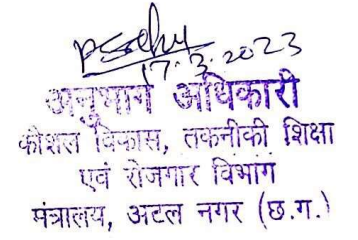 17.3.2023
अनुभाग अधिकारी
कौशल विकास, तकनीकी शिक्षा
एवं रोजगार विभाग
मंत्रालय, अटल नगर (छ.ग.)